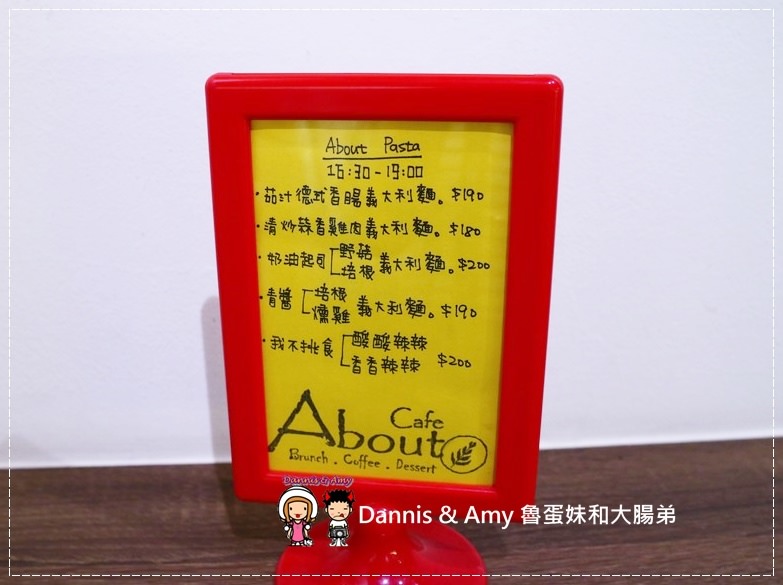 About Pasta
16:30-19:00
·茄汁德式香腸義大利麵。$190
·清炒蒜香雞肉義大利麵。$180
·奶油起司[野菇 培根 義大利麵。$200
·青醬[培根 燻雞 義大利麵。$190
·我不挑食[酸酸辣辣 香香辣辣 $200
About Cafe
Brunch . Coffee . Dessert
Dannis & Amy
Dannis & Amy 魯蛋妹和大腸弟